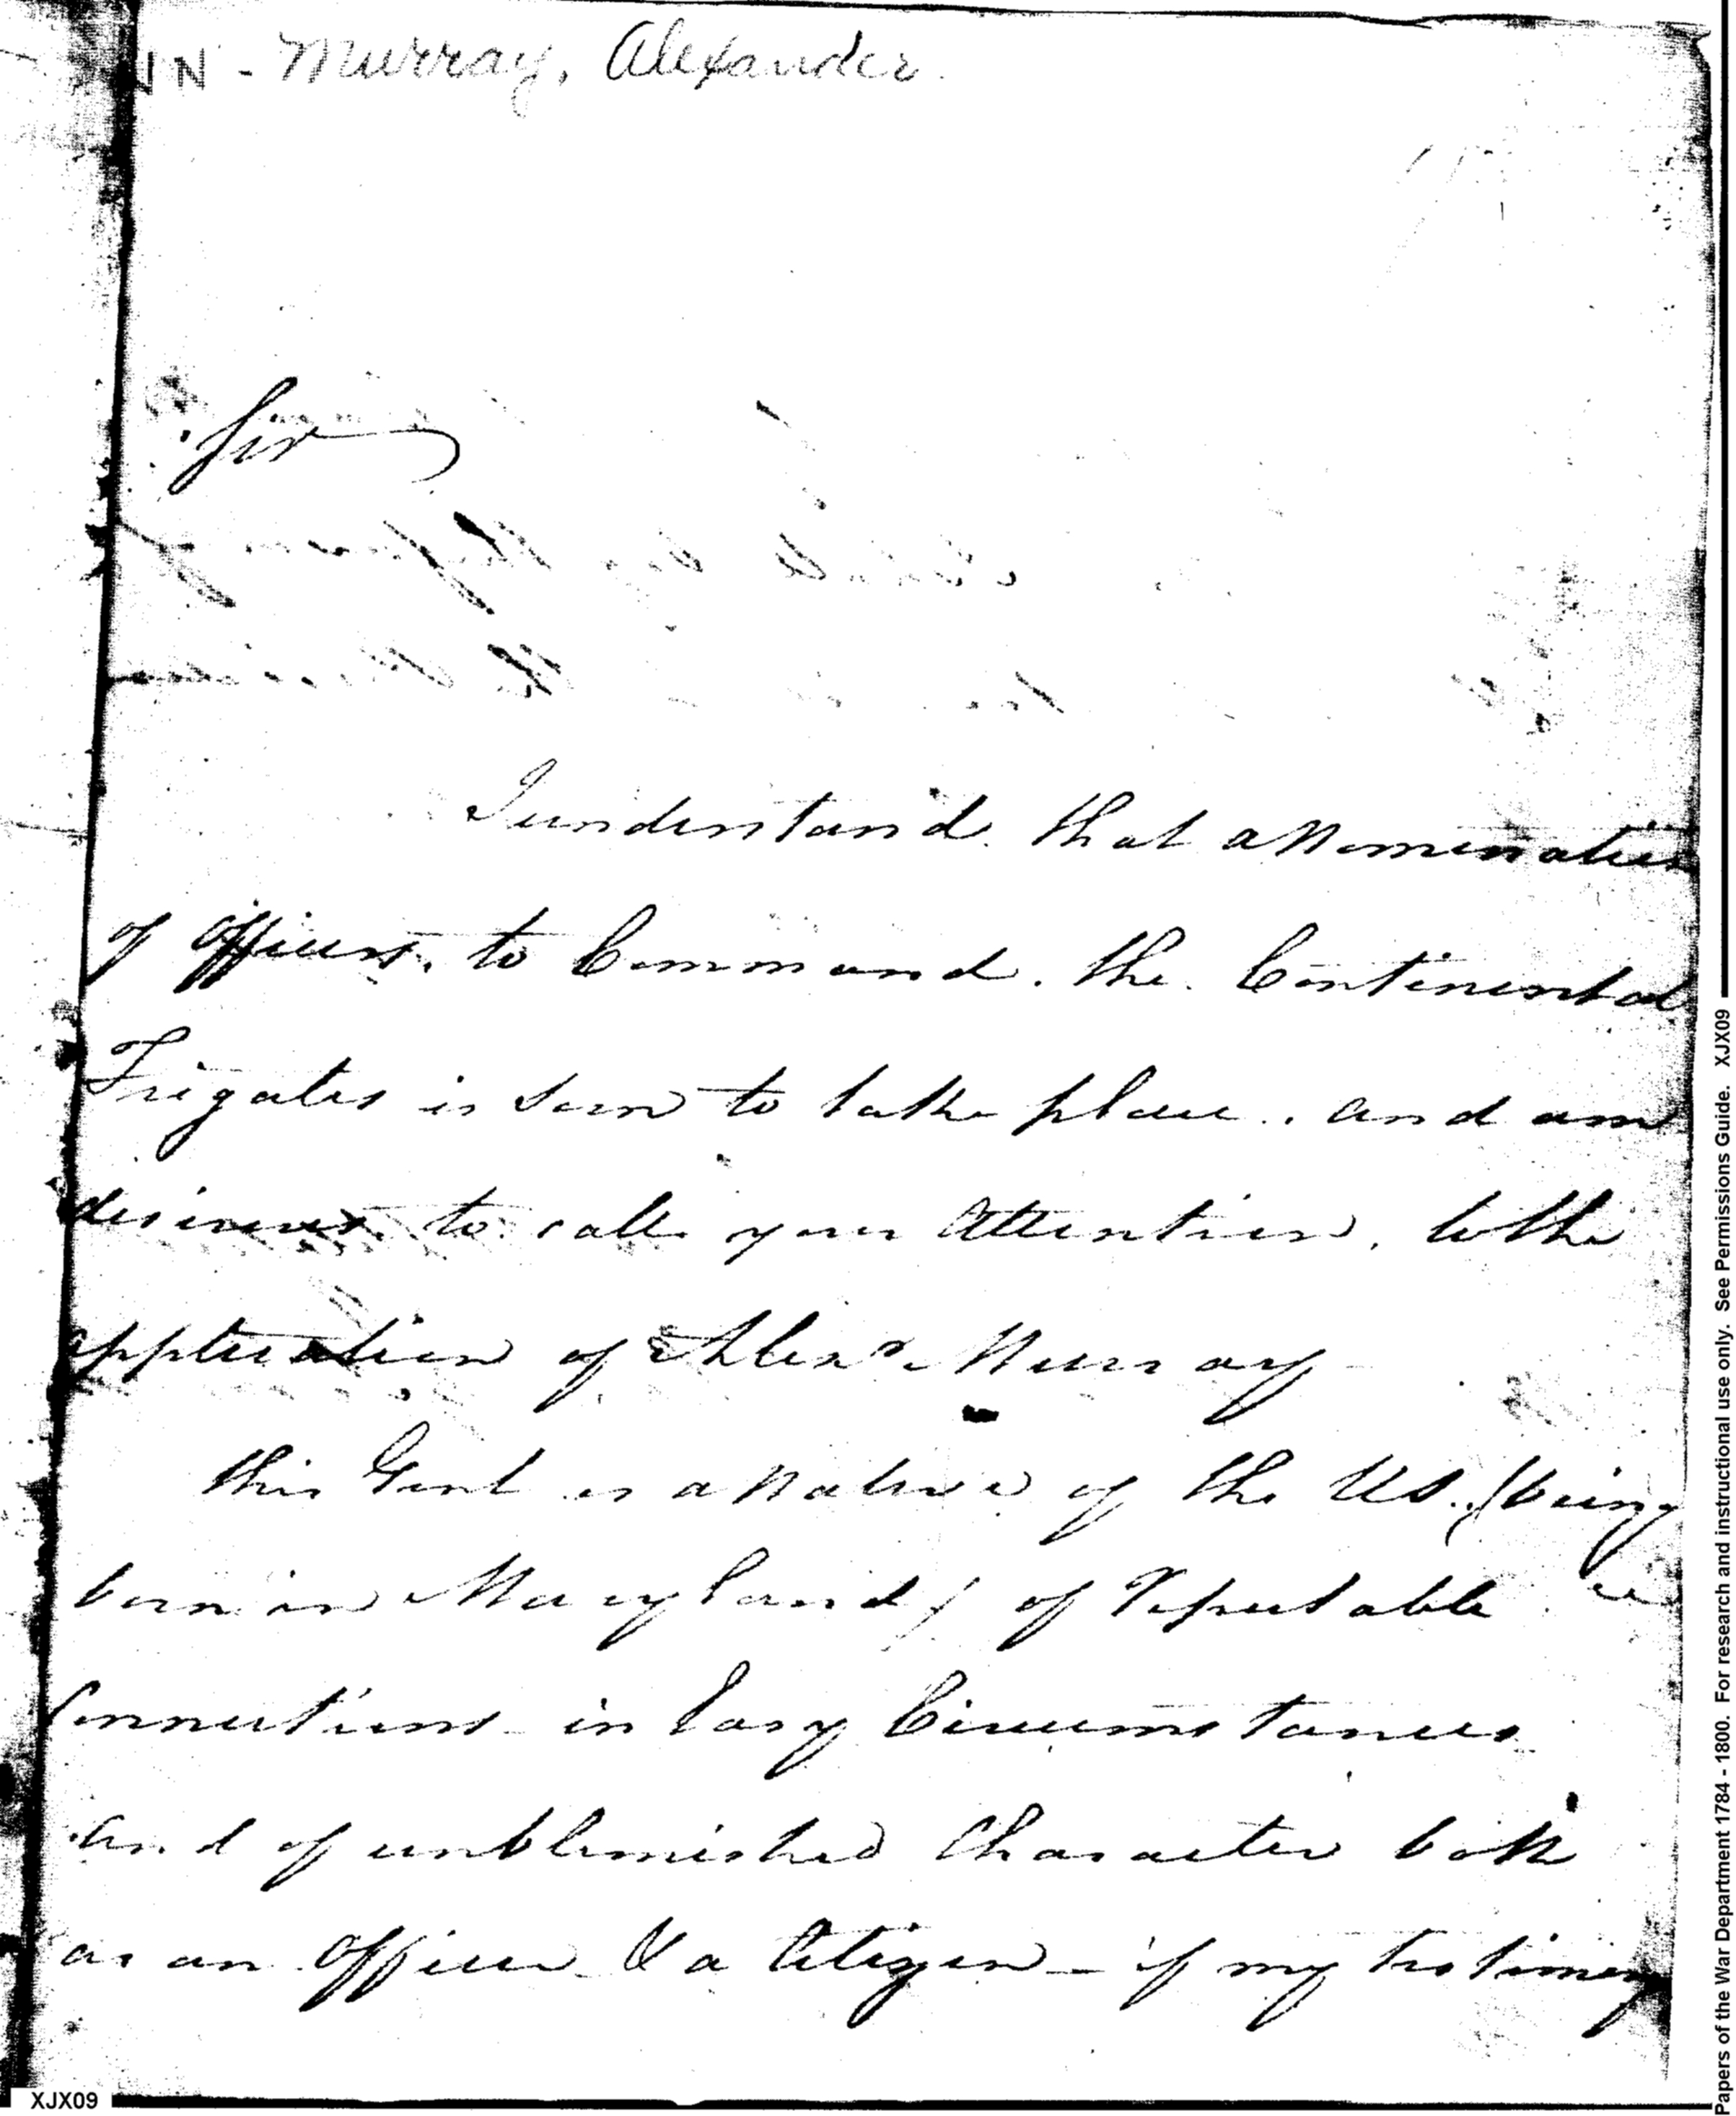 NN - Murray, Alexander.
Sir
I understand. that a Nomination
of Officers. to Command. the. Continental
Frigates is soon to take place. and am
desirous. to. call. your Attention, to the
application of Alexr. Murray
this Gent is a Native of the US. (being
born in Maryland) of Reputable
Connections in Easy Circumstances
and of unblemished Character both
as an Officer & a Citizen - if my testimony
XJX09
Papers of the War Department 1784 - 1800. For research and instructional use only. See Permissions Guide. XJX09